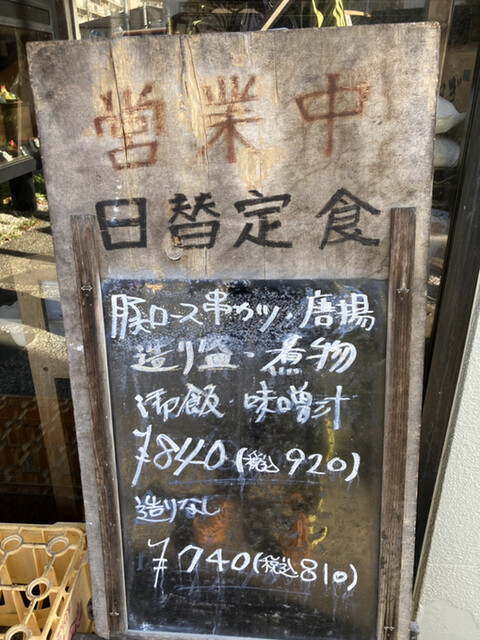 営業中
日替定食
豚ロース串カツ・唐揚
造り盛・煮物
御飯 味噌汁
¥840(税込920)
造りなし
¥740(税込810)